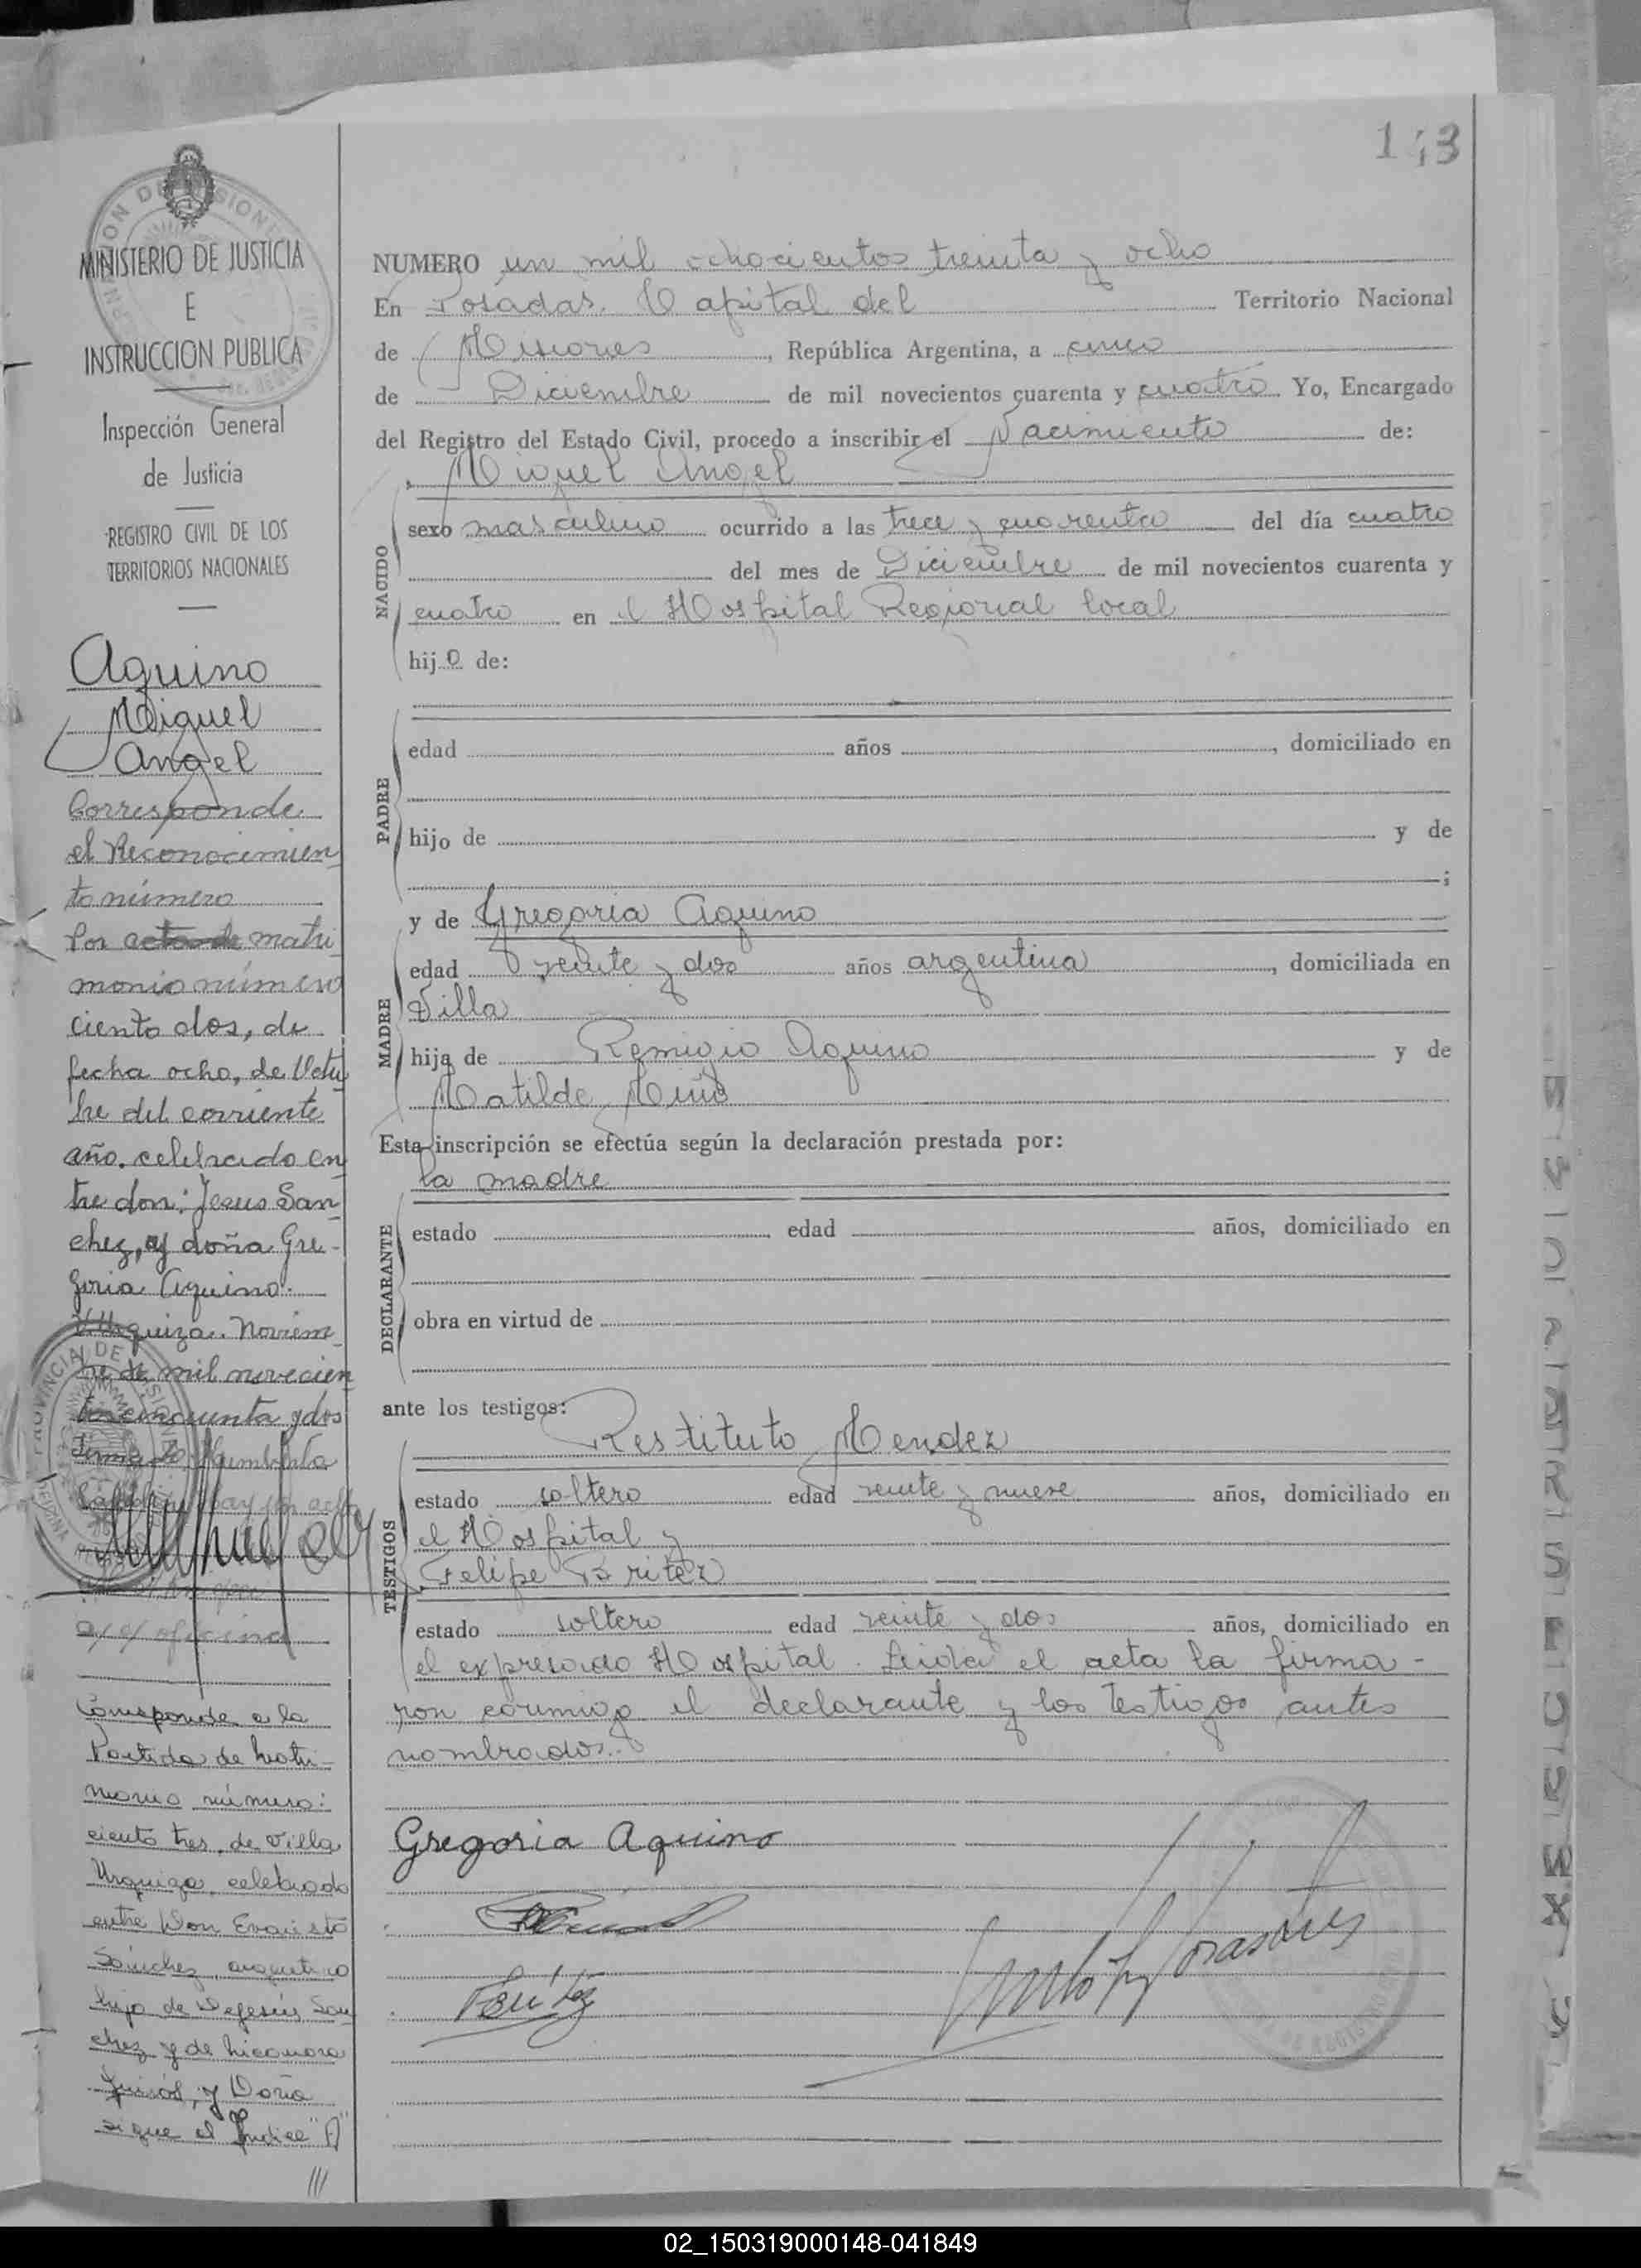 143
MINISTERIO DE JUSTICIA
E
INSTRUCCION PUBLICA
Inspección General
de Justicia
REGISTRO CIVIL DE LOS
TERRITORIOS NACIONALES
Aquino
Miguel
Angel
Corresponde
el Reconocimien
to número
Por acta de matri
monio número
ciento dos, de
fecha ocho, de Octu
bre del corriente
año. celebrado en
tre don: Jesus San
chez, y doña Gre-
goria Aquino.
V. Urquiza. Noviem
bre de mil novecien
tos cincuenta y dos
a/c/ oficina
Corresponde a la
Partida de Matri-
monio número:
ciento tres, de Villa
Urquiza, celebrado
entre Don Evaristo
Sánchez, argentino
hijo de Sán
chez y de
y Doña
sigue al Indice "A"
///
NUMERO un mil ochocientos treinta y ocho
En Posadas. Capital del Territorio Nacional
de Misiones, República Argentina, a cinco
de Diciembre de mil novecientos cuarenta y cuatro. Yo, Encargado
del Registro del Estado Civil, procedo a inscribir el Nacimiento de:
Miguel Angel
NACIDO
sexo masculino ocurrido a las trece y cuarenta del día cuatro
del mes de Diciembre de mil novecientos cuarenta y
cuatro en el Hospital Regional local
hijo de:
PADRE
edad años , domiciliado en
hijo de y de
;
y de Gregoria Aquino
MADRE
edad veinte y dos años argentina, domiciliada en
Villa
hija de Remigio Aquino y de
Matilde
Esta inscripción se efectúa según la declaración prestada por:
la madre
DECLARANTE
estado , edad años, domiciliado en
obra en virtud de
ante los testigos:
Restituto Mendez
TESTIGOS
estado soltero edad veinte y nueve años, domiciliado en
el Hospital y
Felipe Britez
estado soltero edad veinte y dos años, domiciliado en
el expresado Hospital. Leida el acta la firma-
ron conmigo el declarante y los testigos antes
nombrados.
Gregoria Aquino
02_150319000148-041849